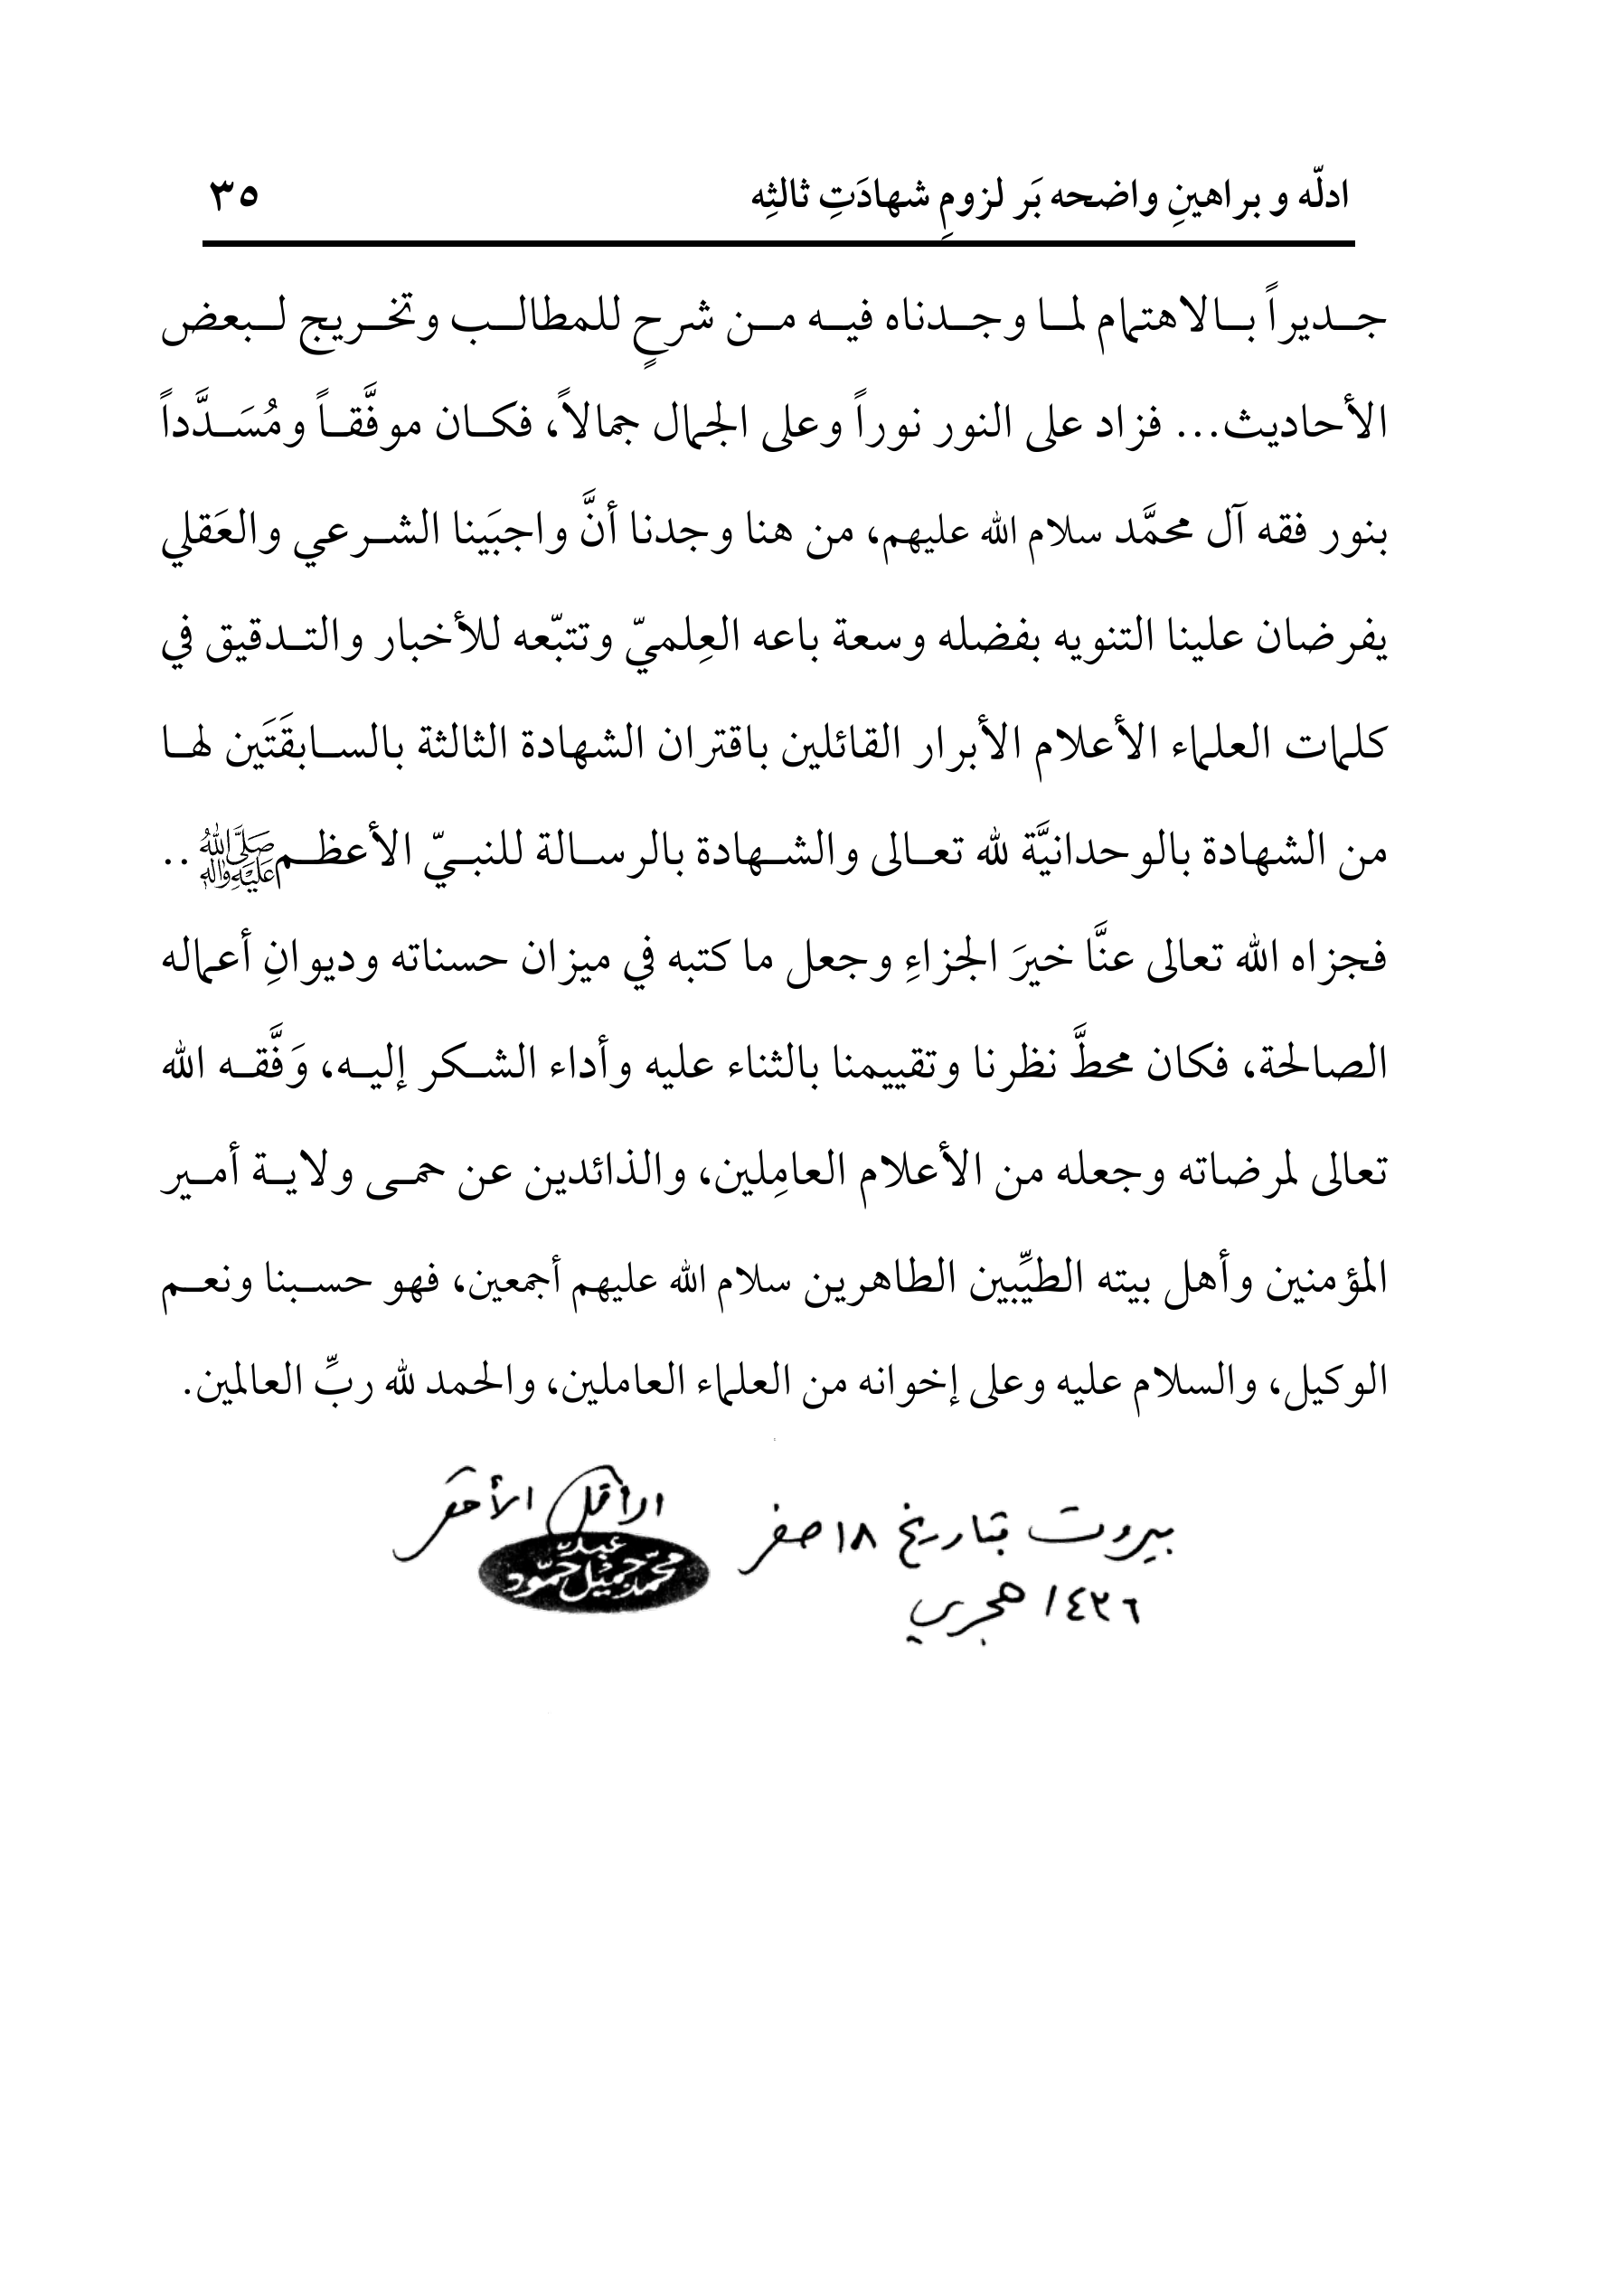 ادلّه و براهينِ واضحه بَر لزومِ شهادَتِ ثالثِه ٣٥
جديراً بالاهتمام لما وجدناه فيه من شرحٍ للمطالب وتخريج لبعض
الأحاديث... فزاد على النور نوراً وعلى الجمال جمالاً، فكان موفَّقاً ومُسَدَّداً
بنور فقه آل محمَّد سلام الله عليهم، من هنا وجدنا أنَّ واجبَينا الشرعي والعَقلي
يفرضان علينا التنويه بفضله وسعة باعه العِلميّ وتتبّعه للأخبار والتدقيق في
كلمات العلماء الأعلام الأبرار القائلين باقتران الشهادة الثالثة بالسابقَتَين لها
من الشهادة بالوحدانيَّة لله تعالى والشهادة بالرسالة للنبيّ الأعظم صَلَّى اللهُ عَلَيْهِ وَآلِهِ ..
فجزاه الله تعالى عنَّا خيرَ الجزاءِ وجعل ما كتبه في ميزان حسناته وديوانِ أعماله
الصالحة، فكان محطَّ نظرنا وتقييمنا بالثناء عليه وأداء الشكر إليه، وَفَّقه الله
تعالى لمرضاته وجعله من الأعلام العامِلين، والذائدين عن حمى ولاية أمير
المؤمنين وأهل بيته الطيِّبين الطاهرين سلام الله عليهم أجمعين، فهو حسبنا ونعم
الوكيل، والسلام عليه وعلى إخوانه من العلماء العاملين، والحمد لله ربِّ العالمين.
الأقل الأحقر
بيروت بتاريخ ١٨ صفر
عبده
محمّد جميل حمّود
١٤٣٦ هجري